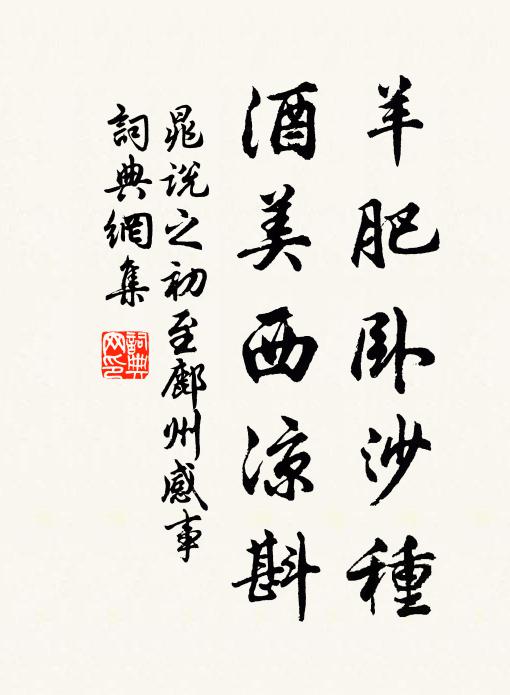 羊肥卧沙種
酒美西凉斟
晁说之初至鄜州感事
詞典網集
詞典網印